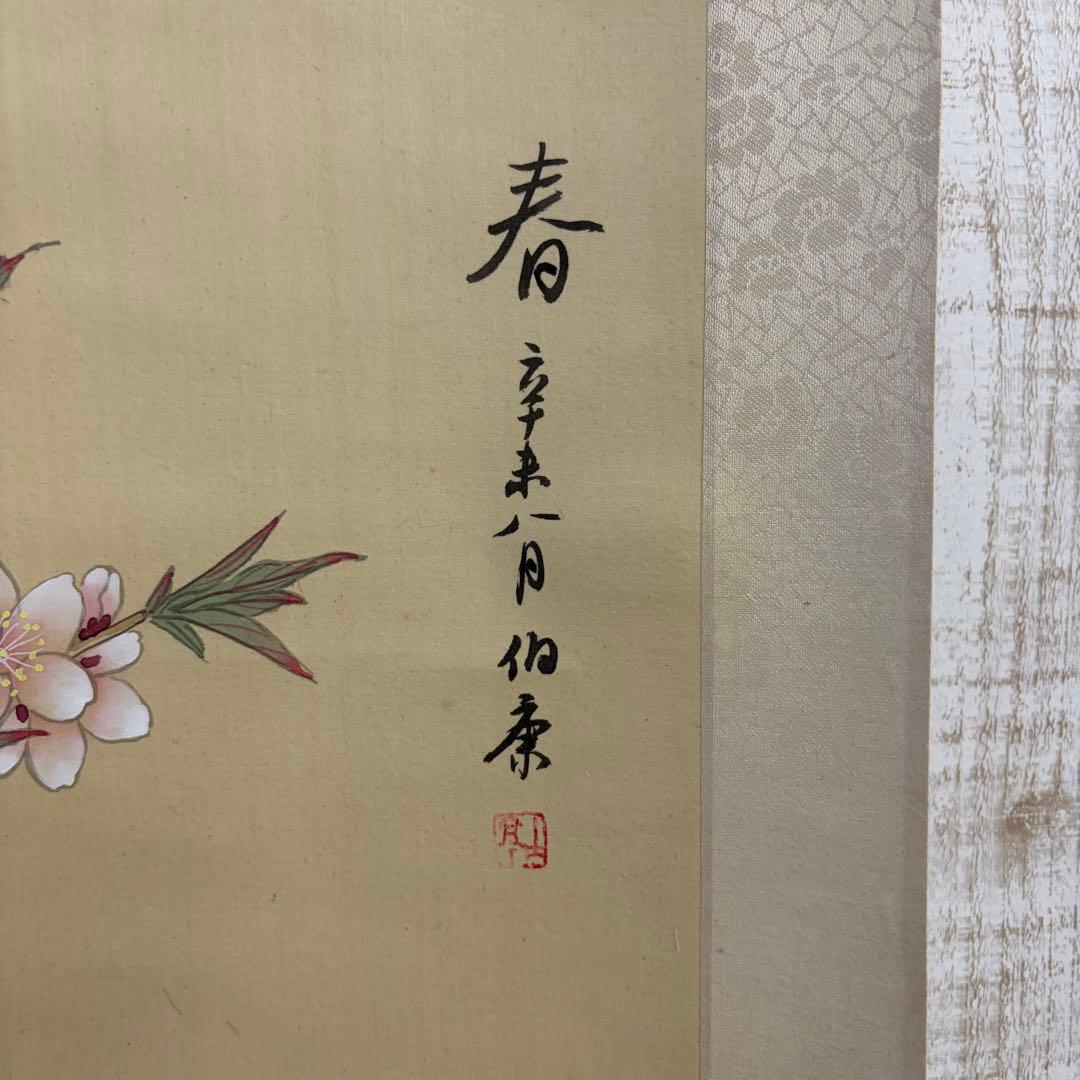 春 辛未八月 伯康